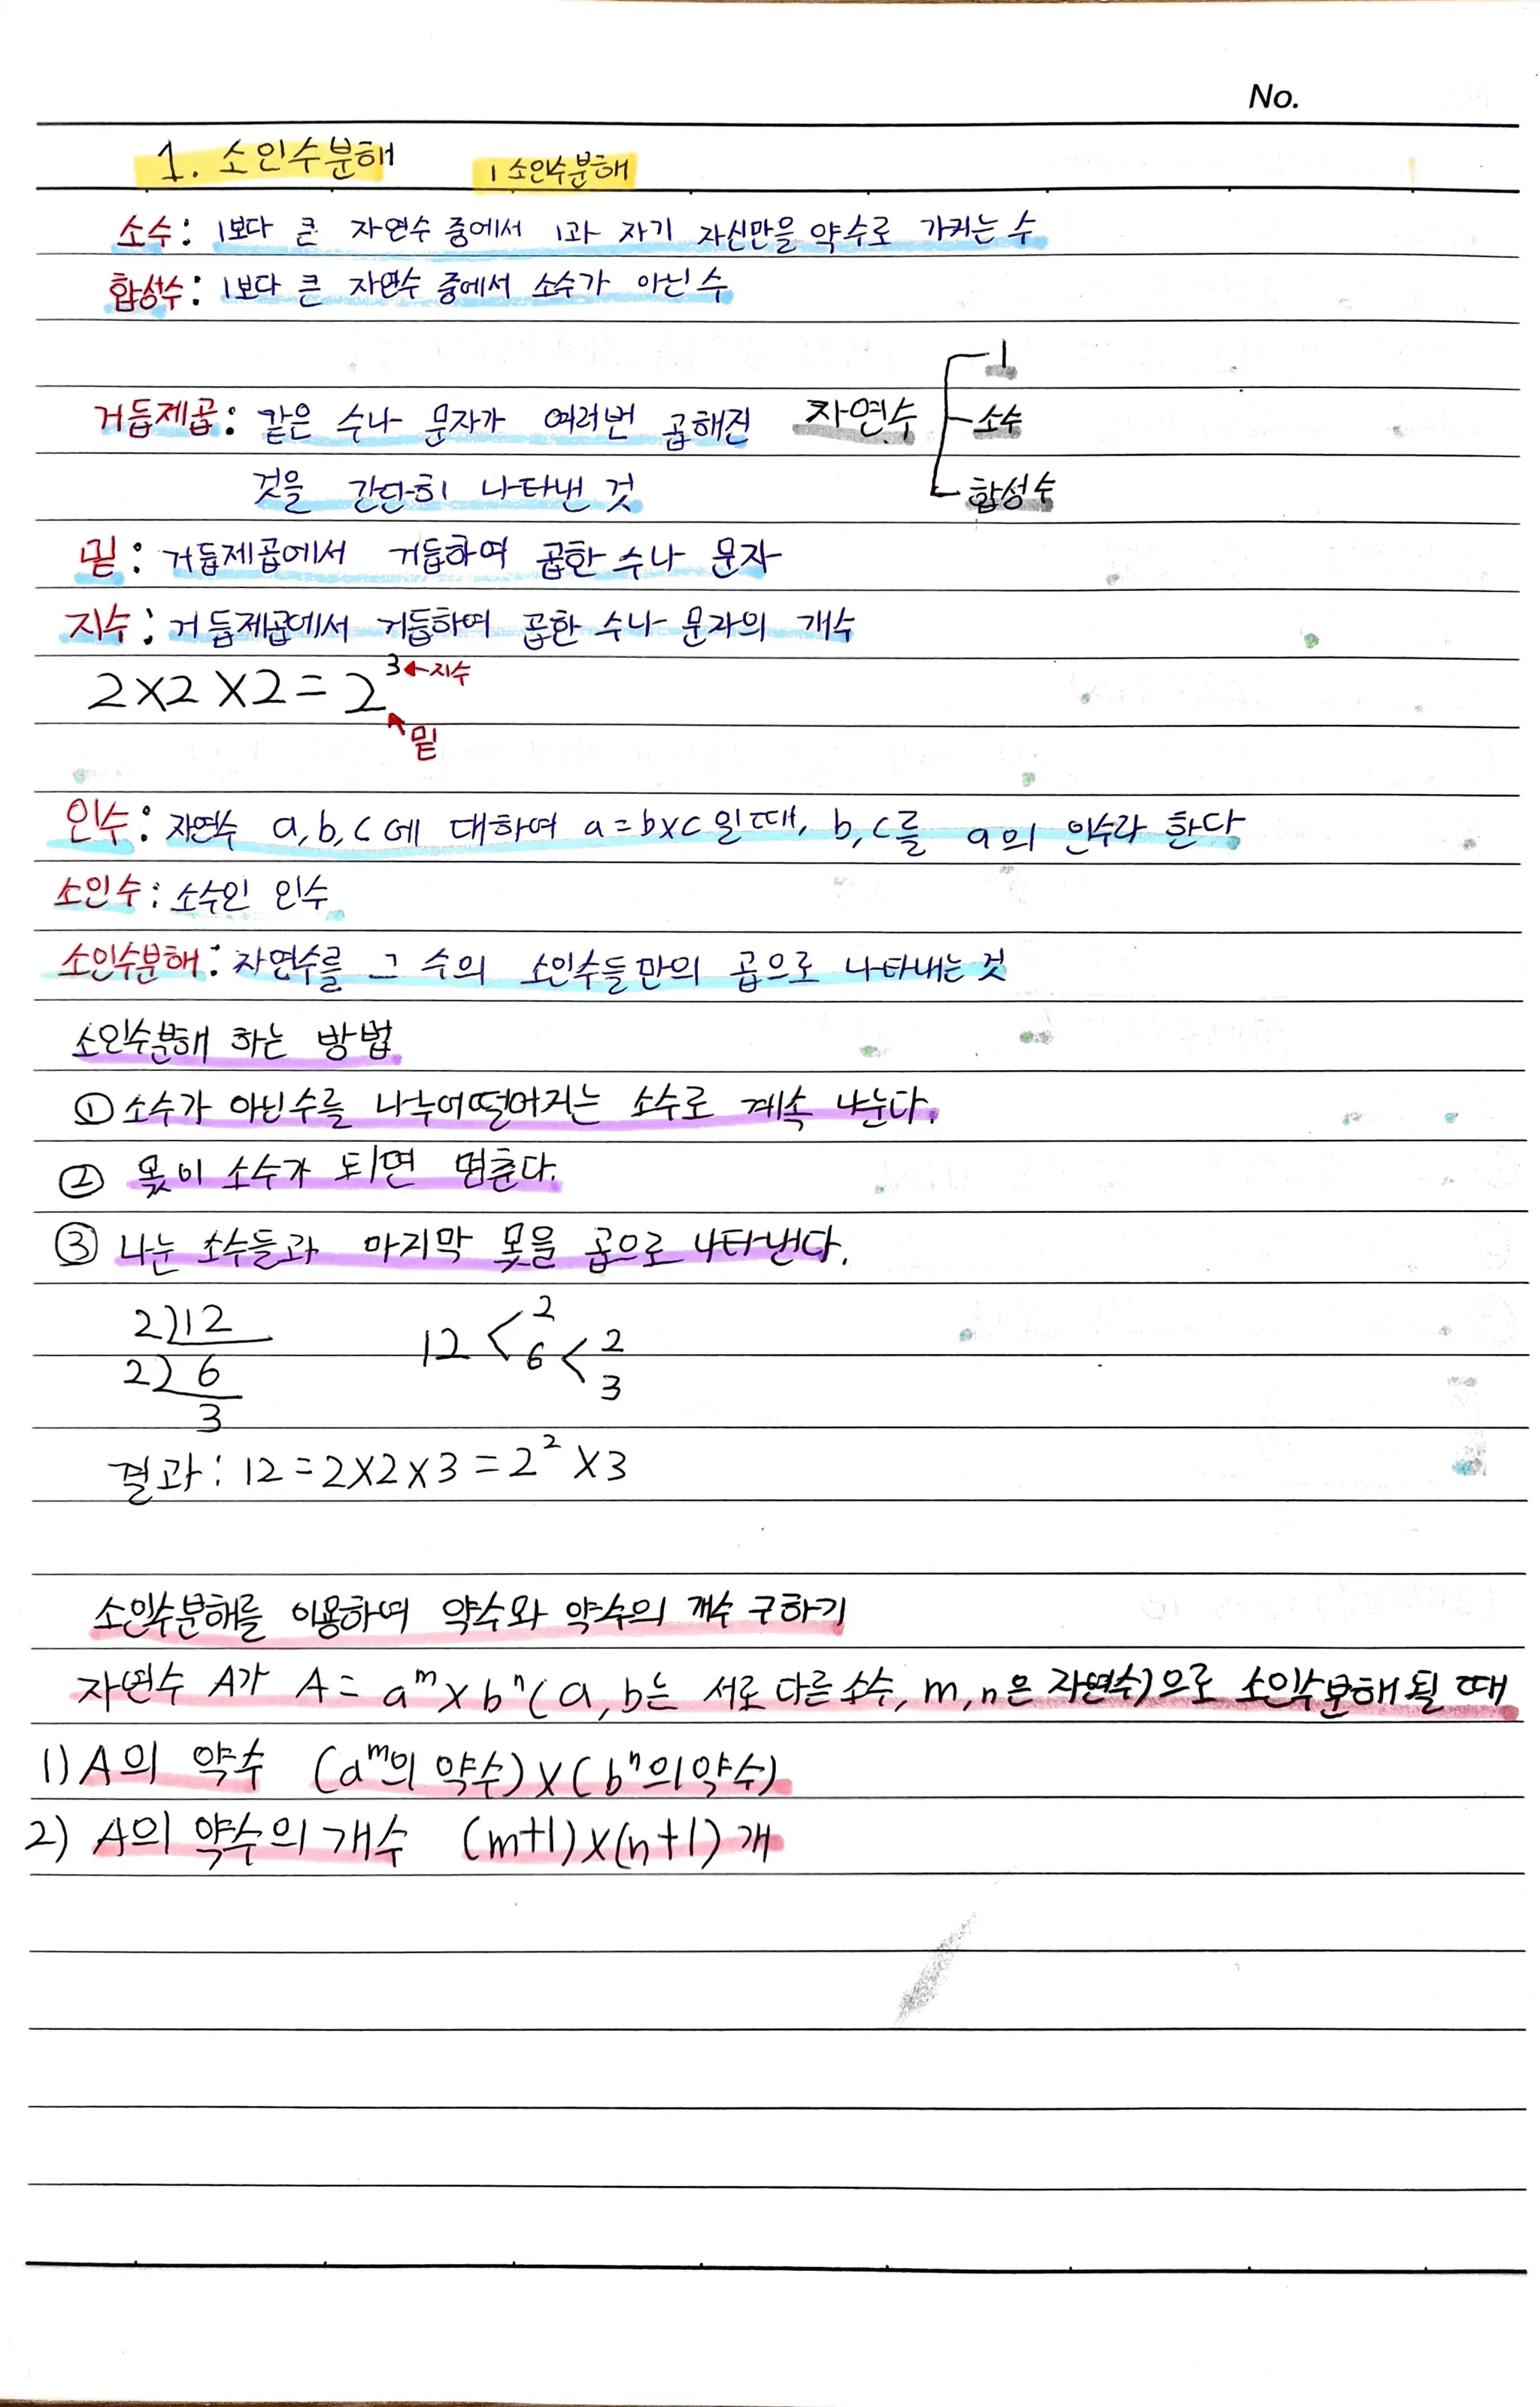 No.
1. 소인수분해 1 소인수분해
소수: 1보다 큰 자연수 중에서 1과 자기 자신만을 약수로 가지는 수
합성수: 1보다 큰 자연수 중에서 소수가 아닌 수
거듭제곱: 같은 수나 문자가 여러번 곱해진
것을 간단히 나타낸 것
자연수
1
소수
합성수
밑: 거듭제곱에서 거듭하여 곱한 수나 문자
지수: 거듭제곱에서 거듭하여 곱한 수나 문자의 개수
2×2×2=2³←지수
밑
인수: 자연수 a,b,c에 대하여 a=b×c일 때, b,c를 a의 인수라 한다
소인수: 소수인 인수
소인수분해: 자연수를 그 수의 소인수들만의 곱으로 나타내는 것
소인수분해 하는 방법
① 소수가 아닌수를 나누어떨어지는 소수로 계속 나눈다.
② 몫이 소수가 되면 멈춘다.
③ 나눈 소수들과 마지막 몫을 곱으로 나타낸다.
2)12
2) 6
3
12 < 2
6 < 2
3
결과: 12=2×2×3=2²×3
소인수분해를 이용하여 약수와 약수의 개수 구하기
자연수 A가 A=aᵐ×bⁿ(a,b는 서로 다른 소수, m,n은 자연수)으로 소인수분해 될 때
1) A의 약수 (aᵐ의 약수)×(bⁿ의 약수)
2) A의 약수의 개수 (m+1)×(n+1)개